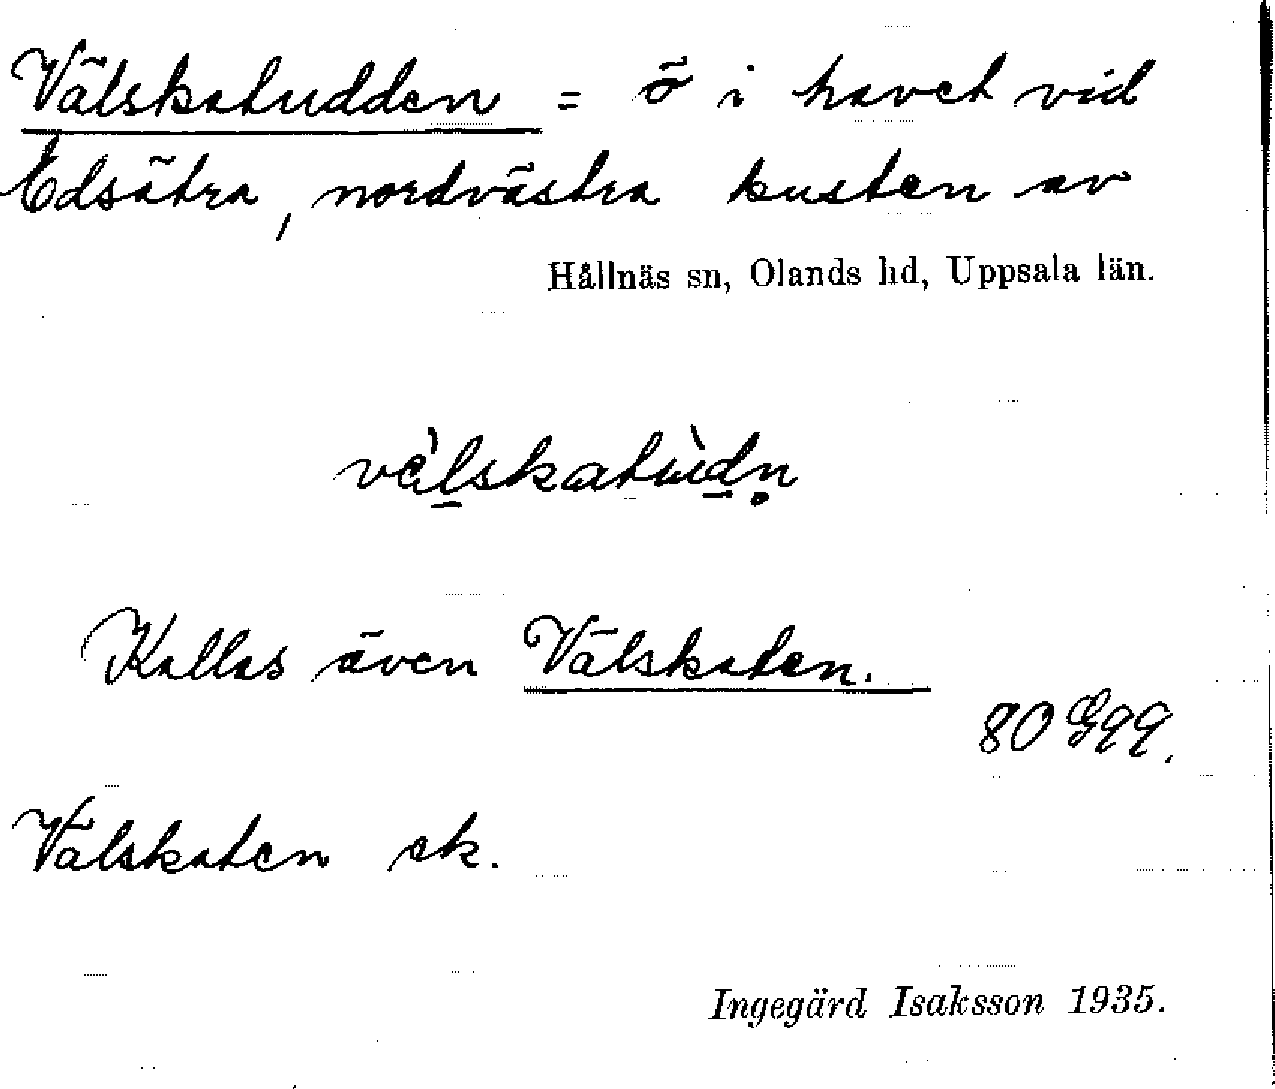 Välskatudden = ö i havet vid
Edsätra, nordvästra kusten av
Hållnäs sn, Olands hd, Uppsala län.
vèl̠skatùd̠ṇ
Kallas även Välskaten.
80 G99.
Välskaten ek.
Ingegärd Isaksson 1935.